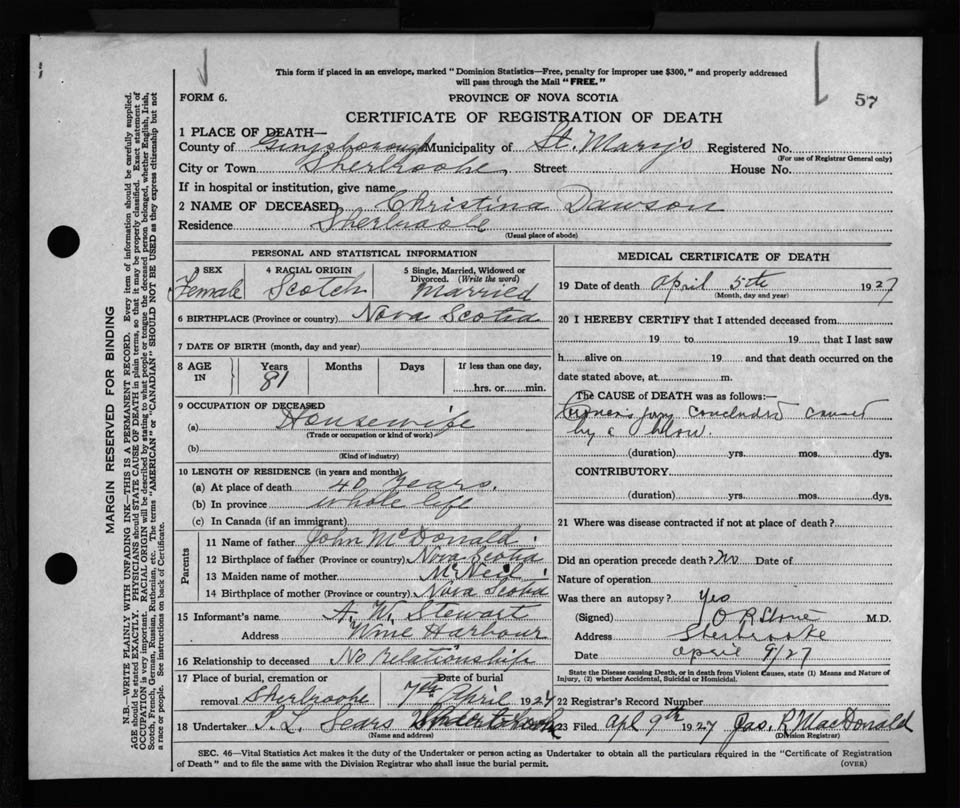 This form if placed in an envelope, marked "Dominion Statistics—Free, penalty for improper use $300," and properly addressed
will pass through the Mail "FREE."
FORM 6.
PROVINCE OF NOVA SCOTIA
57
CERTIFICATE OF REGISTRATION OF DEATH
1 PLACE OF DEATH—
County of Guysborough Municipality of St. Mary's Registered No.
(For use of Registrar General only)
City or Town Sherbrooke Street House No.
If in hospital or institution, give name
2 NAME OF DECEASED Christina Dawson
Residence Sherbrooke
(Usual place of abode)
PERSONAL AND STATISTICAL INFORMATION
3 SEX Female
4 RACIAL ORIGIN Scotch
5 Single, Married, Widowed or Divorced. (Write the word) Married
6 BIRTHPLACE (Province or country) Nova Scotia
7 DATE OF BIRTH (month, day and year)
8 AGE IN Years 81 Months Days If less than one day, hrs. or min.
9 OCCUPATION OF DECEASED
(a) Housewife
(Trade or occupation or kind of work)
(b)
(Kind of industry)
10 LENGTH OF RESIDENCE (in years and months)
(a) At place of death 40 Years.
(b) In province whole life
(c) In Canada (if an immigrant)
Parents
11 Name of father John McDonald
12 Birthplace of father (Province or country) Nova Scotia
13 Maiden name of mother McNeil
14 Birthplace of mother (Province or country) Nova Scotia
15 Informant's name A. W. Stewart
Address Wine Harbour
16 Relationship to deceased No Relationship
17 Place of burial, cremation or removal Sherbrooke Date of burial 7th April 1927
18 Undertaker P. L. Sears
(Name and address)
MEDICAL CERTIFICATE OF DEATH
19 Date of death April 5th 1927
(Month, day and year)
20 I HEREBY CERTIFY that I attended deceased from
19 to 19 that I last saw
h alive on 19 and that death occurred on the
date stated above, at m.
The CAUSE of DEATH was as follows:—
Coroner's jury concluded caused
by a blow.
(duration) yrs. mos. dys.
CONTRIBUTORY
(duration) yrs. mos. dys.
21 Where was disease contracted if not at place of death?
Did an operation precede death? No Date of
Nature of operation
Was there an autopsy? Yes
(Signed) M.D.
Address Sherbrooke
Date April 9/27
State the Disease causing Death, or in death from Violent Causes, state (1) Means and Nature of
Injury, (2) whether Accidental, Suicidal or Homicidal.
22 Registrar's Record Number
23 Filed Apl 9th 1927 Jas. R MacDonald
(Division Registrar)
SEC. 46—Vital Statistics Act makes it the duty of the Undertaker or person acting as Undertaker to obtain all the particulars required in the "Certificate of Registration
of Death" and to file the same with the Division Registrar who shall issue the burial permit.
(OVER)
MARGIN RESERVED FOR BINDING
N.B.—WRITE PLAINLY WITH UNFADING INK—THIS IS A PERMANENT RECORD. Every item of information should be carefully supplied.
AGE should be stated EXACTLY. PHYSICIANS should STATE CAUSE OF DEATH in plain terms, so that it may be properly classified. Exact statement of
OCCUPATION is very important. RACIAL ORIGIN will be described by stating to what people or tongue the deceased person belonged, whether English, Irish,
Scotch, French, German, Russian, Ruthenian, etc. The terms "AMERICAN" or "CANADIAN" SHOULD NOT BE USED as they express citizenship but not
a race or people. See instructions on back of Certificate.